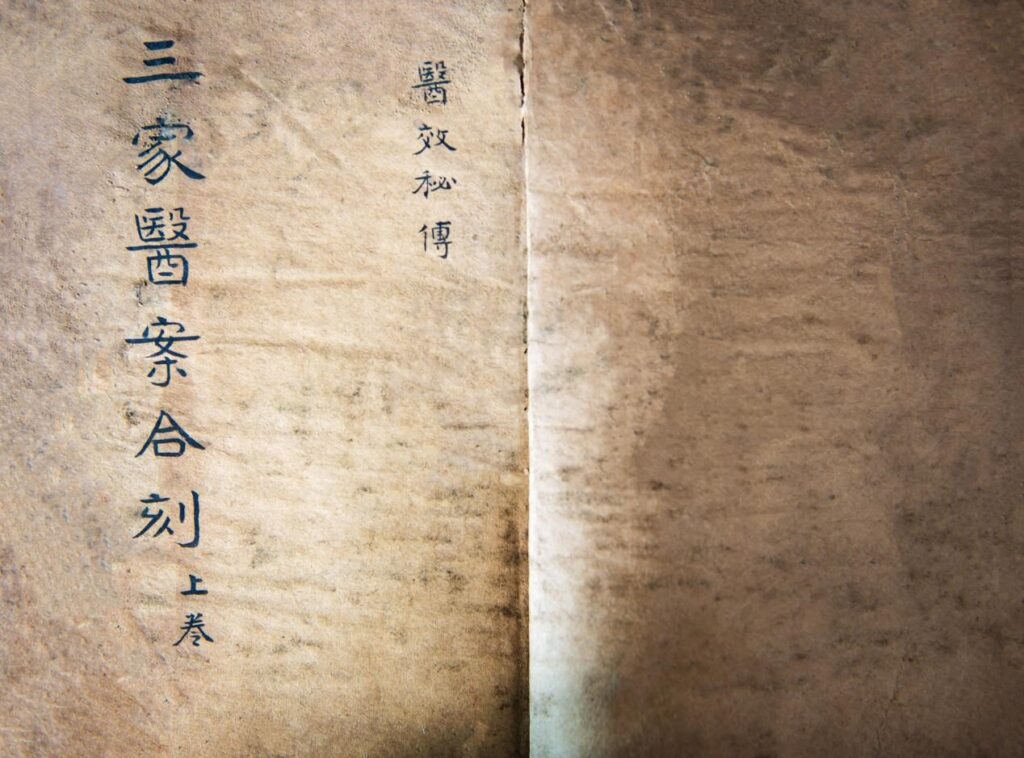 醫效秘傳
三家醫案合刻
上卷